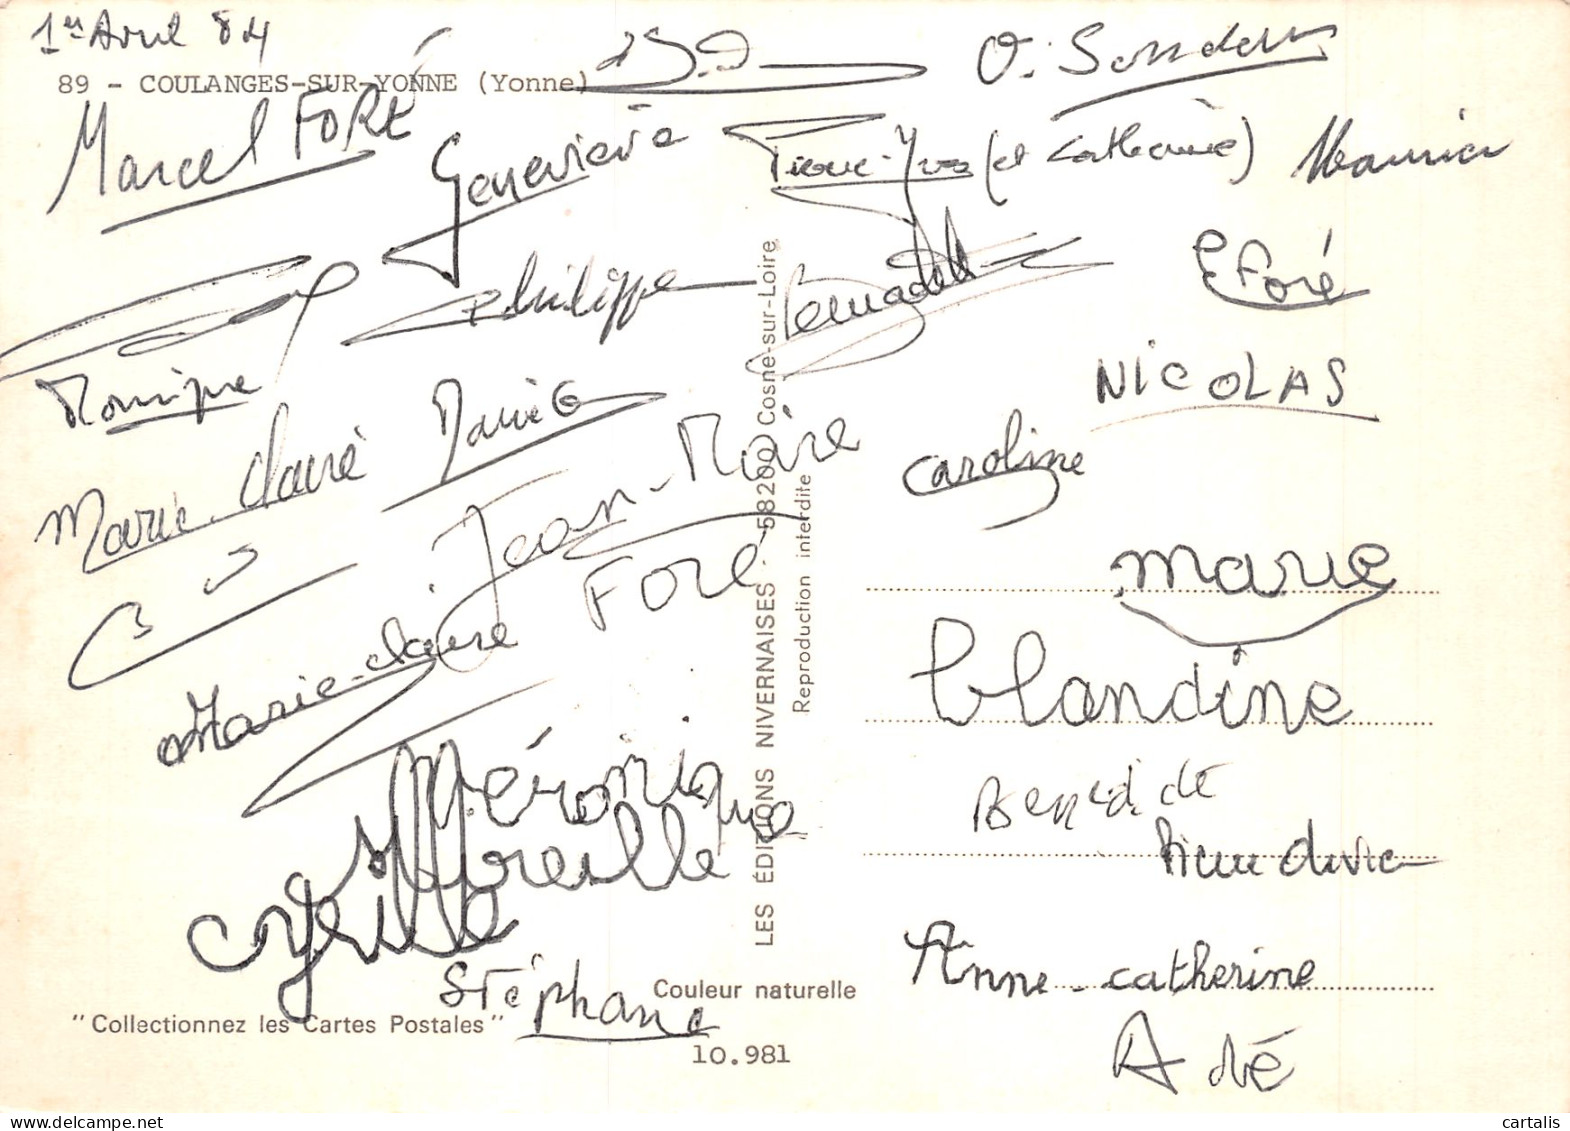 1er Avril 84
89 - COULANGES-SUR-YONNE (Yonne)
Marcel FORÉ
Geneviève
Pierre-Yves (et Catherine)
Philippe
Bernadette
E Foré
Monique
NICOLAS
Marie Claire
Caroline
Jean-Marie
FORÉ
marie
Marie-claire
blandine
Véronique
Mireille
Cyrille
Bénédicte
Anne-catherine
Stéphane
LES ÉDITIONS NIVERNAISES - 58200 Cosne-sur-Loire
Reproduction interdite
Couleur naturelle
"Collectionnez les Cartes Postales"
10.981
cartalis